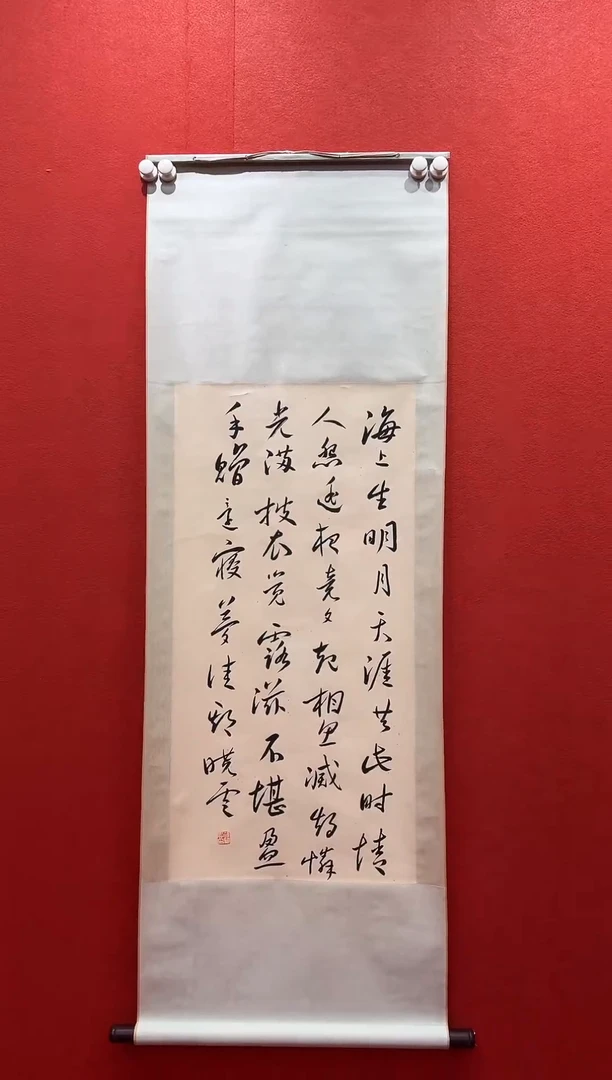 海上生明月天涯共此时情
人怨遥夜竟夕起相思滅烛憐
光满披衣觉露滋不堪盈
手赠还寝夢佳期晓雲